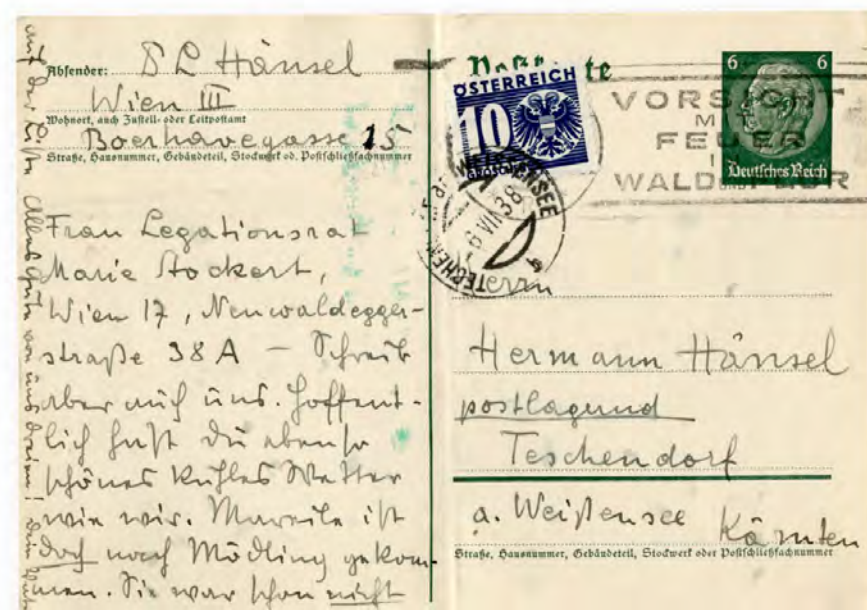 Absender: S L Hänsel
Wien III
Wohnort, auch Zustell- oder Leitpostamt
Boerhavegasse 15
Straße, Hausnummer, Gebäudeteil, Stockwerk od. Postschließfachnummer
Frau Legationsrat
Marie Stockert,
Wien 17, Neuwaldegger-
straße 38 A — Schreib
aber auch uns. Hoffent-
lich hast Du ebenso
schönes kühles Wetter
wie wir. Mareile ist
doch nach Mödling gekom-
men. Sie war schon nicht
auf der Liste. Alles Gute von uns dreien! Dein
6 6
Deutsches Reich
ÖSTERREICH
10
GROSCHEN
VORSICHT
MIT
FEUER
IN
WALD UND FLUR
WEISSENSEE
6 VII 38
Herrn
Hermann Hänsel
postlagernd
Techendorf
a. Weißensee Kärnten
Straße, Hausnummer, Gebäudeteil, Stockwerk oder Postschließfachnummer